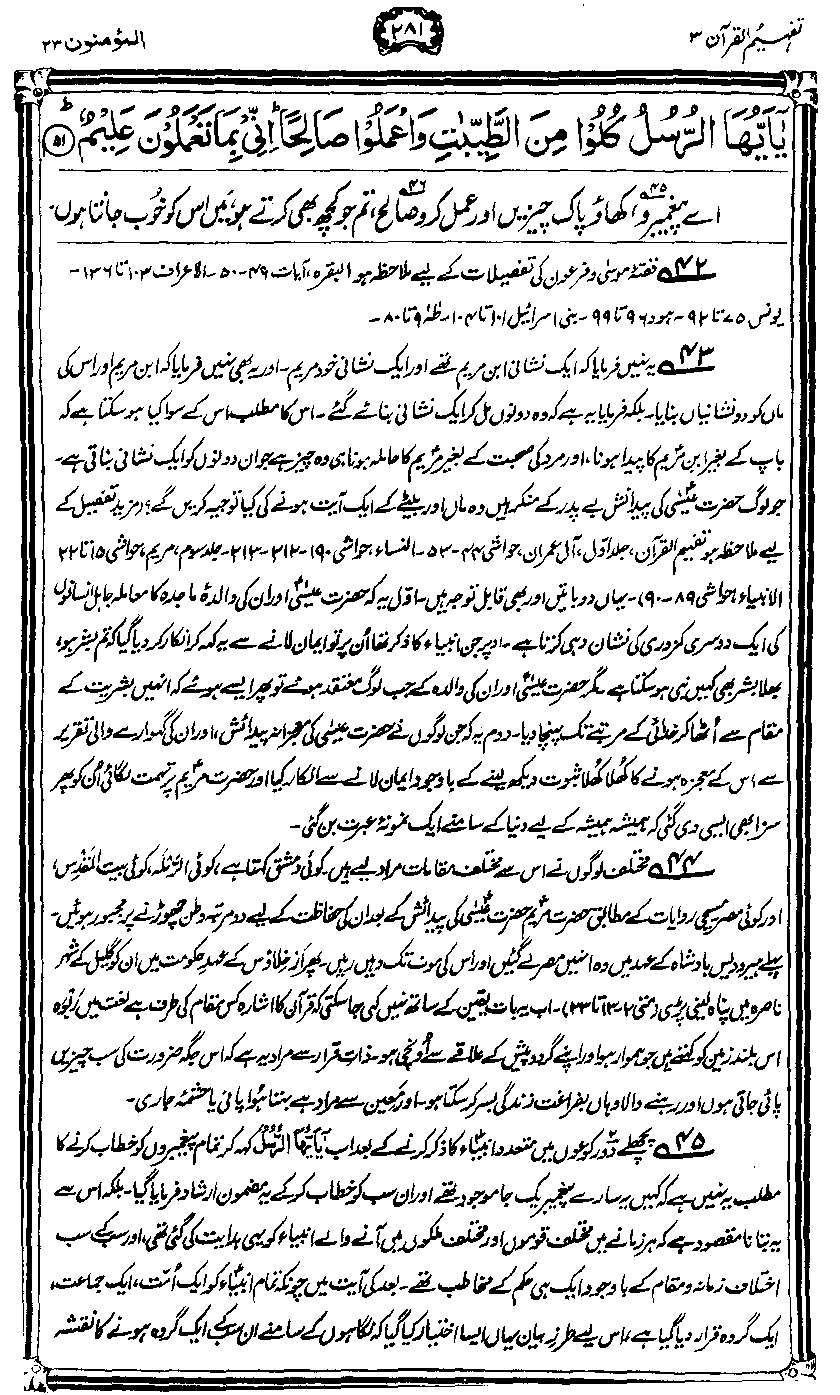 تفہیم القرآن ۳
۲۸۱
المؤمنون ۲۳
يٰۤاَيُّهَا الرُّسُلُ كُلُوْا مِنَ الطَّيِّبٰتِ وَاعْمَلُوْا صَالِحًا ؕ اِنِّيْ بِمَا تَعْمَلُوْنَ عَلِيْمٌ ؕ ۵۱
اے پیغمبرو،۴۵ کھاؤ پاک چیزیں اور عمل کرو صالح،۴۶ تم جو کچھ بھی کرتے ہو، میں اس کو خوب جانتا ہوں۔
۴۲ قصّۂ موسیٰ و فرعون کی تفصیلات کے لیے ملاحظہ ہو البقرہ، آیات ۴۹-۵۰۔ الاعراف ۱۰۳ تا ۱۳۶۔
یونس ۷۵ تا ۹۲۔ ہود ۹۶ تا ۹۹۔ بنی اسرائیل ۱۰۱ تا ۱۰۴۔ طٰہٰ ۹ تا ۸۰۔
۴۳ یہ نہیں فرمایا کہ ایک نشانی ابن مریم تھے اور ایک نشانی خود مریم۔ اور یہ بھی نہیں فرمایا کہ ابن مریم اور اس کی
ماں کو دو نشانیاں بنایا۔ بلکہ فرمایا یہ ہے کہ وہ دونوں مل کر ایک نشانی بنائے گئے۔ اس کا مطلب اس کے سوا کیا ہو سکتا ہے کہ
باپ کے بغیر ابن مریم کا پیدا ہونا، اور مرد کی صحبت کے بغیر مریم کا حاملہ ہونا ہی وہ چیز ہے جو ان دونوں کو ایک نشانی بناتی ہے۔
جو لوگ حضرت عیسیٰؑ کی پیدائش بے پدر کے منکر ہیں وہ ماں اور بیٹے کے ایک آیت ہونے کی کیا توجیہ کریں گے؟ (مزید تفصیل کے
لیے ملاحظہ ہو تفہیم القرآن، جلد اوّل، آل عمران، حواشی ۴۴-۵۳۔ النساء، حواشی ۱۹۰-۲۱۲-۲۱۳۔ جلد سوم، مریم، حواشی ۱۵ تا ۲۲
الانبیاء، حواشی ۸۹-۹۰)۔ یہاں دو باتیں اور بھی قابل توجہ ہیں۔ اوّل یہ کہ حضرت عیسیٰؑ اور ان کی والدۂ ماجدہ کا معاملہ جاہل انسانوں
کی ایک دوسری کمزوری کی نشان دہی کرتا ہے۔ اوپر جن انبیاء کا ذکر تھا اُن پر تو ایمان لانے سے یہ کہہ کر انکار کر دیا گیا کہ تم بشر ہو،
بھلا بشر بھی کہیں نبی ہو سکتا ہے۔ مگر حضرت عیسیٰؑ اور ان کی والدہ کے جب لوگ معتقد ہوئے تو پھر ایسے ہوئے کہ انہیں بشریت کے
مقام سے اُٹھا کر خدائی کے مرتبے تک پہنچا دیا۔ دوم یہ کہ جن لوگوں نے حضرت عیسیٰ کی معجزانہ پیدائش، اور ان کی گہوارے والی تقریر
سے اس کے معجزہ ہونے کا کھلا کھلا ثبوت دیکھ لینے کے باوجود ایمان لانے سے انکار کیا اور حضرت مریمؑ پر تہمت لگائی اُن کو پھر
سزا بھی ایسی دی گئی کہ ہمیشہ ہمیشہ کے لیے دنیا کے سامنے ایک نمونۂ عبرت بن گئی۔
۴۴ مختلف لوگوں نے اس سے مختلف مقامات مراد لیے ہیں۔ کوئی دمشق کہتا ہے، کوئی الرَّملہ، کوئی بیت المقدس،
اور کوئی مصر۔ مسیحی روایات کے مطابق حضرت مریمؑ حضرت عیسیٰؑ کی پیدائش کے بعد ان کی حفاظت کے لیے دو مرتبہ وطن چھوڑنے پر مجبور ہوئیں۔
پہلے ہیرودیس بادشاہ کے عہد میں وہ انہیں مصر لے گئیں اور اس کی موت تک وہیں رہیں۔ پھر اَرْخلاؤس کے عہدِ حکومت میں ان کو گلیل کے شہر
ناصرہ میں پناہ لینی پڑی (متی ۲-۱۳ تا ۲۳)۔ اب یہ بات یقین کے ساتھ نہیں کہی جا سکتی کہ قرآن کا اشارہ کس مقام کی طرف ہے۔ لغت میں رَبْوَہ
اس بلند زمین کو کہتے ہیں جو ہموار ہو اور اپنے گرد و پیش کے علاقے سے اُونچی ہو۔ ذاتِ قرار سے مراد یہ ہے کہ اس جگہ ضرورت کی سب چیزیں
پائی جاتی ہوں اور رہنے والا وہاں بفراغت زندگی بسر کر سکتا ہو۔ اور مَعین سے مراد ہے بہتا ہوا پانی یا چشمۂ جاری۔
۴۵ پچھلے دو رکوعوں میں متعدد انبیاءؑ کا ذکر کرنے کے بعد اب يٰۤاَيُّهَا الرُّسُلُ کہہ کر تمام پیغمبروں کو خطاب کرنے کا
مطلب یہ نہیں ہے کہ کہیں یہ سارے پیغمبر یک جا موجود تھے اور ان سب کو خطاب کر کے یہ مضمون ارشاد فرمایا گیا۔ بلکہ اس سے
یہ بتانا مقصود ہے کہ ہر زمانے میں مختلف قوموں اور مختلف ملکوں میں آنے والے انبیاء کو یہی ہدایت کی گئی تھی، اور سب کے سب
اختلافِ زمانہ و مقام کے باوجود ایک ہی حکم کے مخاطب تھے۔ بعد کی آیت میں چونکہ تمام انبیاءؑ کو ایک اُمّت، ایک جماعت،
ایک گروہ قرار دیا گیا ہے، اس لیے طرزِ بیان یہاں ایسا اختیار کیا گیا کہ نگاہوں کے سامنے ان سب کے ایک گروہ ہونے کا نقشہ